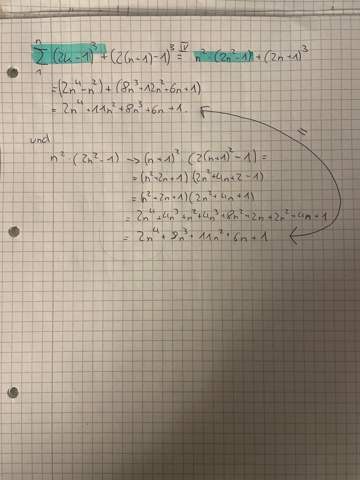 n
∑ (2k-1)³ + (2(n+1)-1)³ = IV n² · (2n²-1) + (2n+1)³
1
= (2n⁴-n²) + (8n³+12n²+6n+1)
= 2n⁴ + 11n² + 8n³ + 6n + 1.
und
n² · (2n²-1) → (n+1)² · (2(n+1)²-1) =
= (n²+2n+1) (2n²+4n+2-1)
= (n²+2n+1) (2n²+4n+1)
= 2n⁴+4n³+n²+4n³+8n²+2n+2n²+4n+1
= 2n⁴ + 8n³ + 11n² + 6n + 1
=